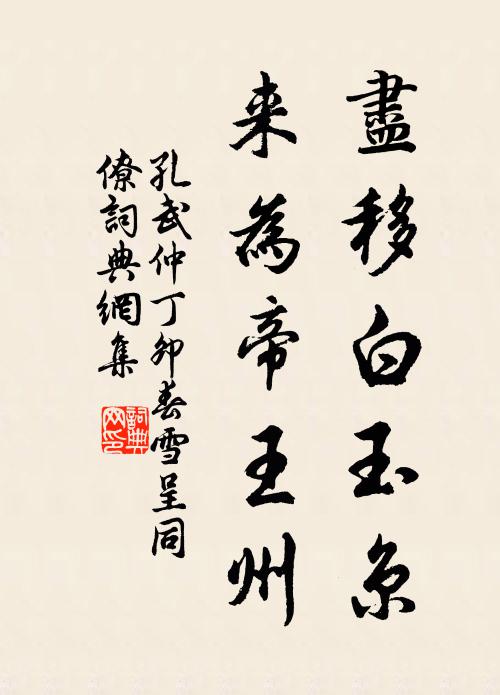 盡移白玉京
来為帝王州
孔武仲丁卯春雪呈同
僚詞典網集
詞典
网印